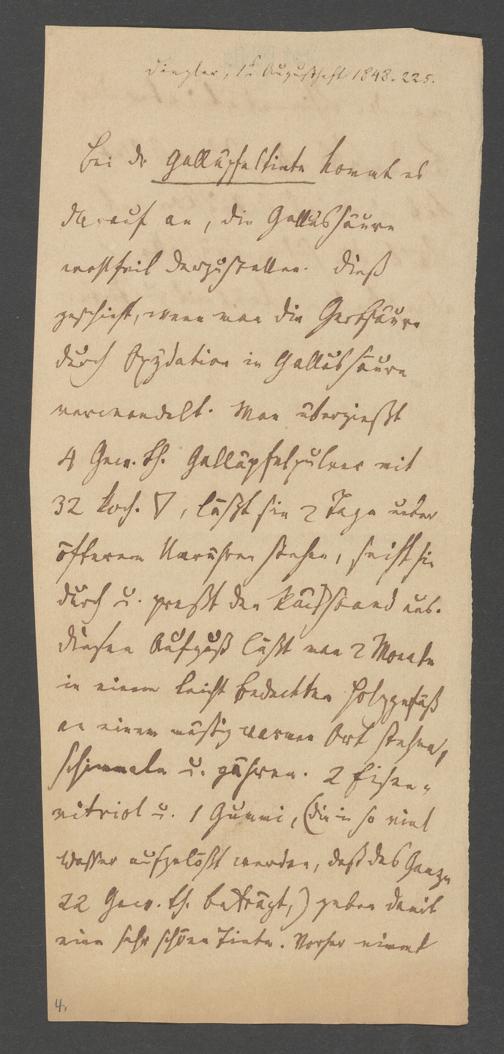 Dingler, 1s Augustheft 1848. 225.
Bei dr Galläpfeltinte kommt es
darauf an, die Gallussäure
wohlfeil darzustellen. Dieß
geschieht, wenn man die Gerbsäure
durch Oxydation in Gallussäure
verwandelt. Man übergießt
4 Gew. th. Galläpfelpulver mit
32 koch. ▽, läßt sie 2 Tage unter
öfterem Umrühren stehen, seiht sie
durch u. preßt den Rückstand aus.
Diesen Aufguß läßt man 2 Monate
in einem leicht bedeckten Holzgefäß
an einem mäßig warmen Ort stehen,
schimmeln u. gähren. 2 Eisen-
vitriol u. 1 Gummi, (die in so viel
Wasser aufgelöst werden, daß das Ganze
22 Gew. th. beträgt,) geben damit
eine sehr schöne Tinte. Vorher nimmt
4.